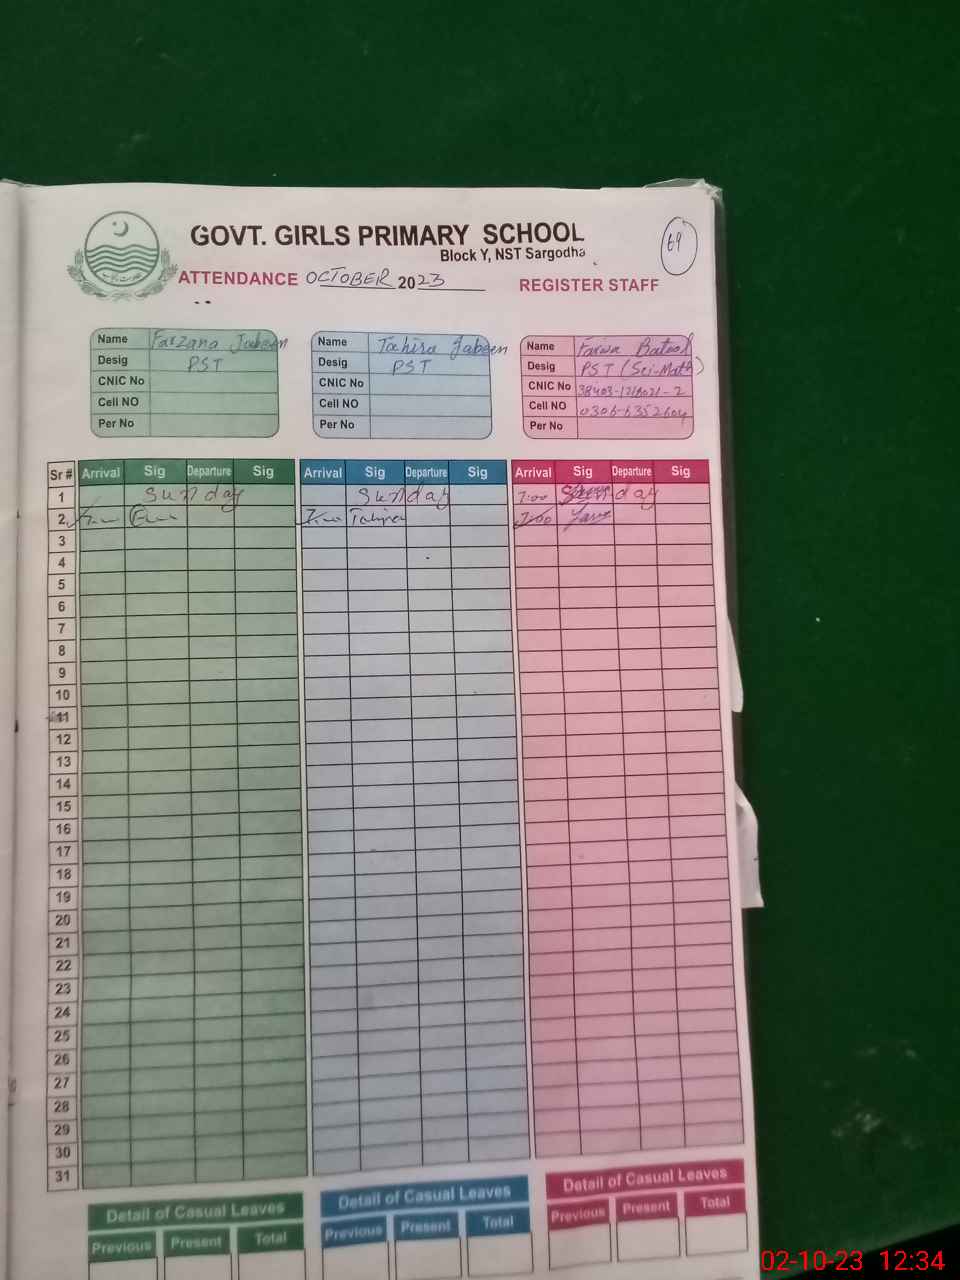 GOVT. GIRLS PRIMARY SCHOOL
69
Block Y, NST Sargodha
ATTENDANCE OCTOBER 2023 REGISTER STAFF
Name Farzana Jabeen
Desig PST
CNIC No
Cell NO
Per No
Name Tahira Jabeen
Desig PST
CNIC No
Cell NO
Per No
Name Fariwa Batool
Desig PST (Sci-Math)
CNIC No
Cell NO 0306-6352604
Per No
Sr # Arrival Sig Departure Sig Arrival Sig Departure Sig Arrival Sig Departure Sig
1 Sunday Sunday 7:00 Sunday
2 7:00 7:00 Tahira 7:00
3
4
5
6
7
8
9
10
11
12
13
14
15
16
17
18
19
20
21
22
23
24
25
26
27
28
29
30
31
Detail of Casual Leaves Detail of Casual Leaves Detail of Casual Leaves
Previous Present Total Previous Present Total Previous Present Total
02-10-23 12:34